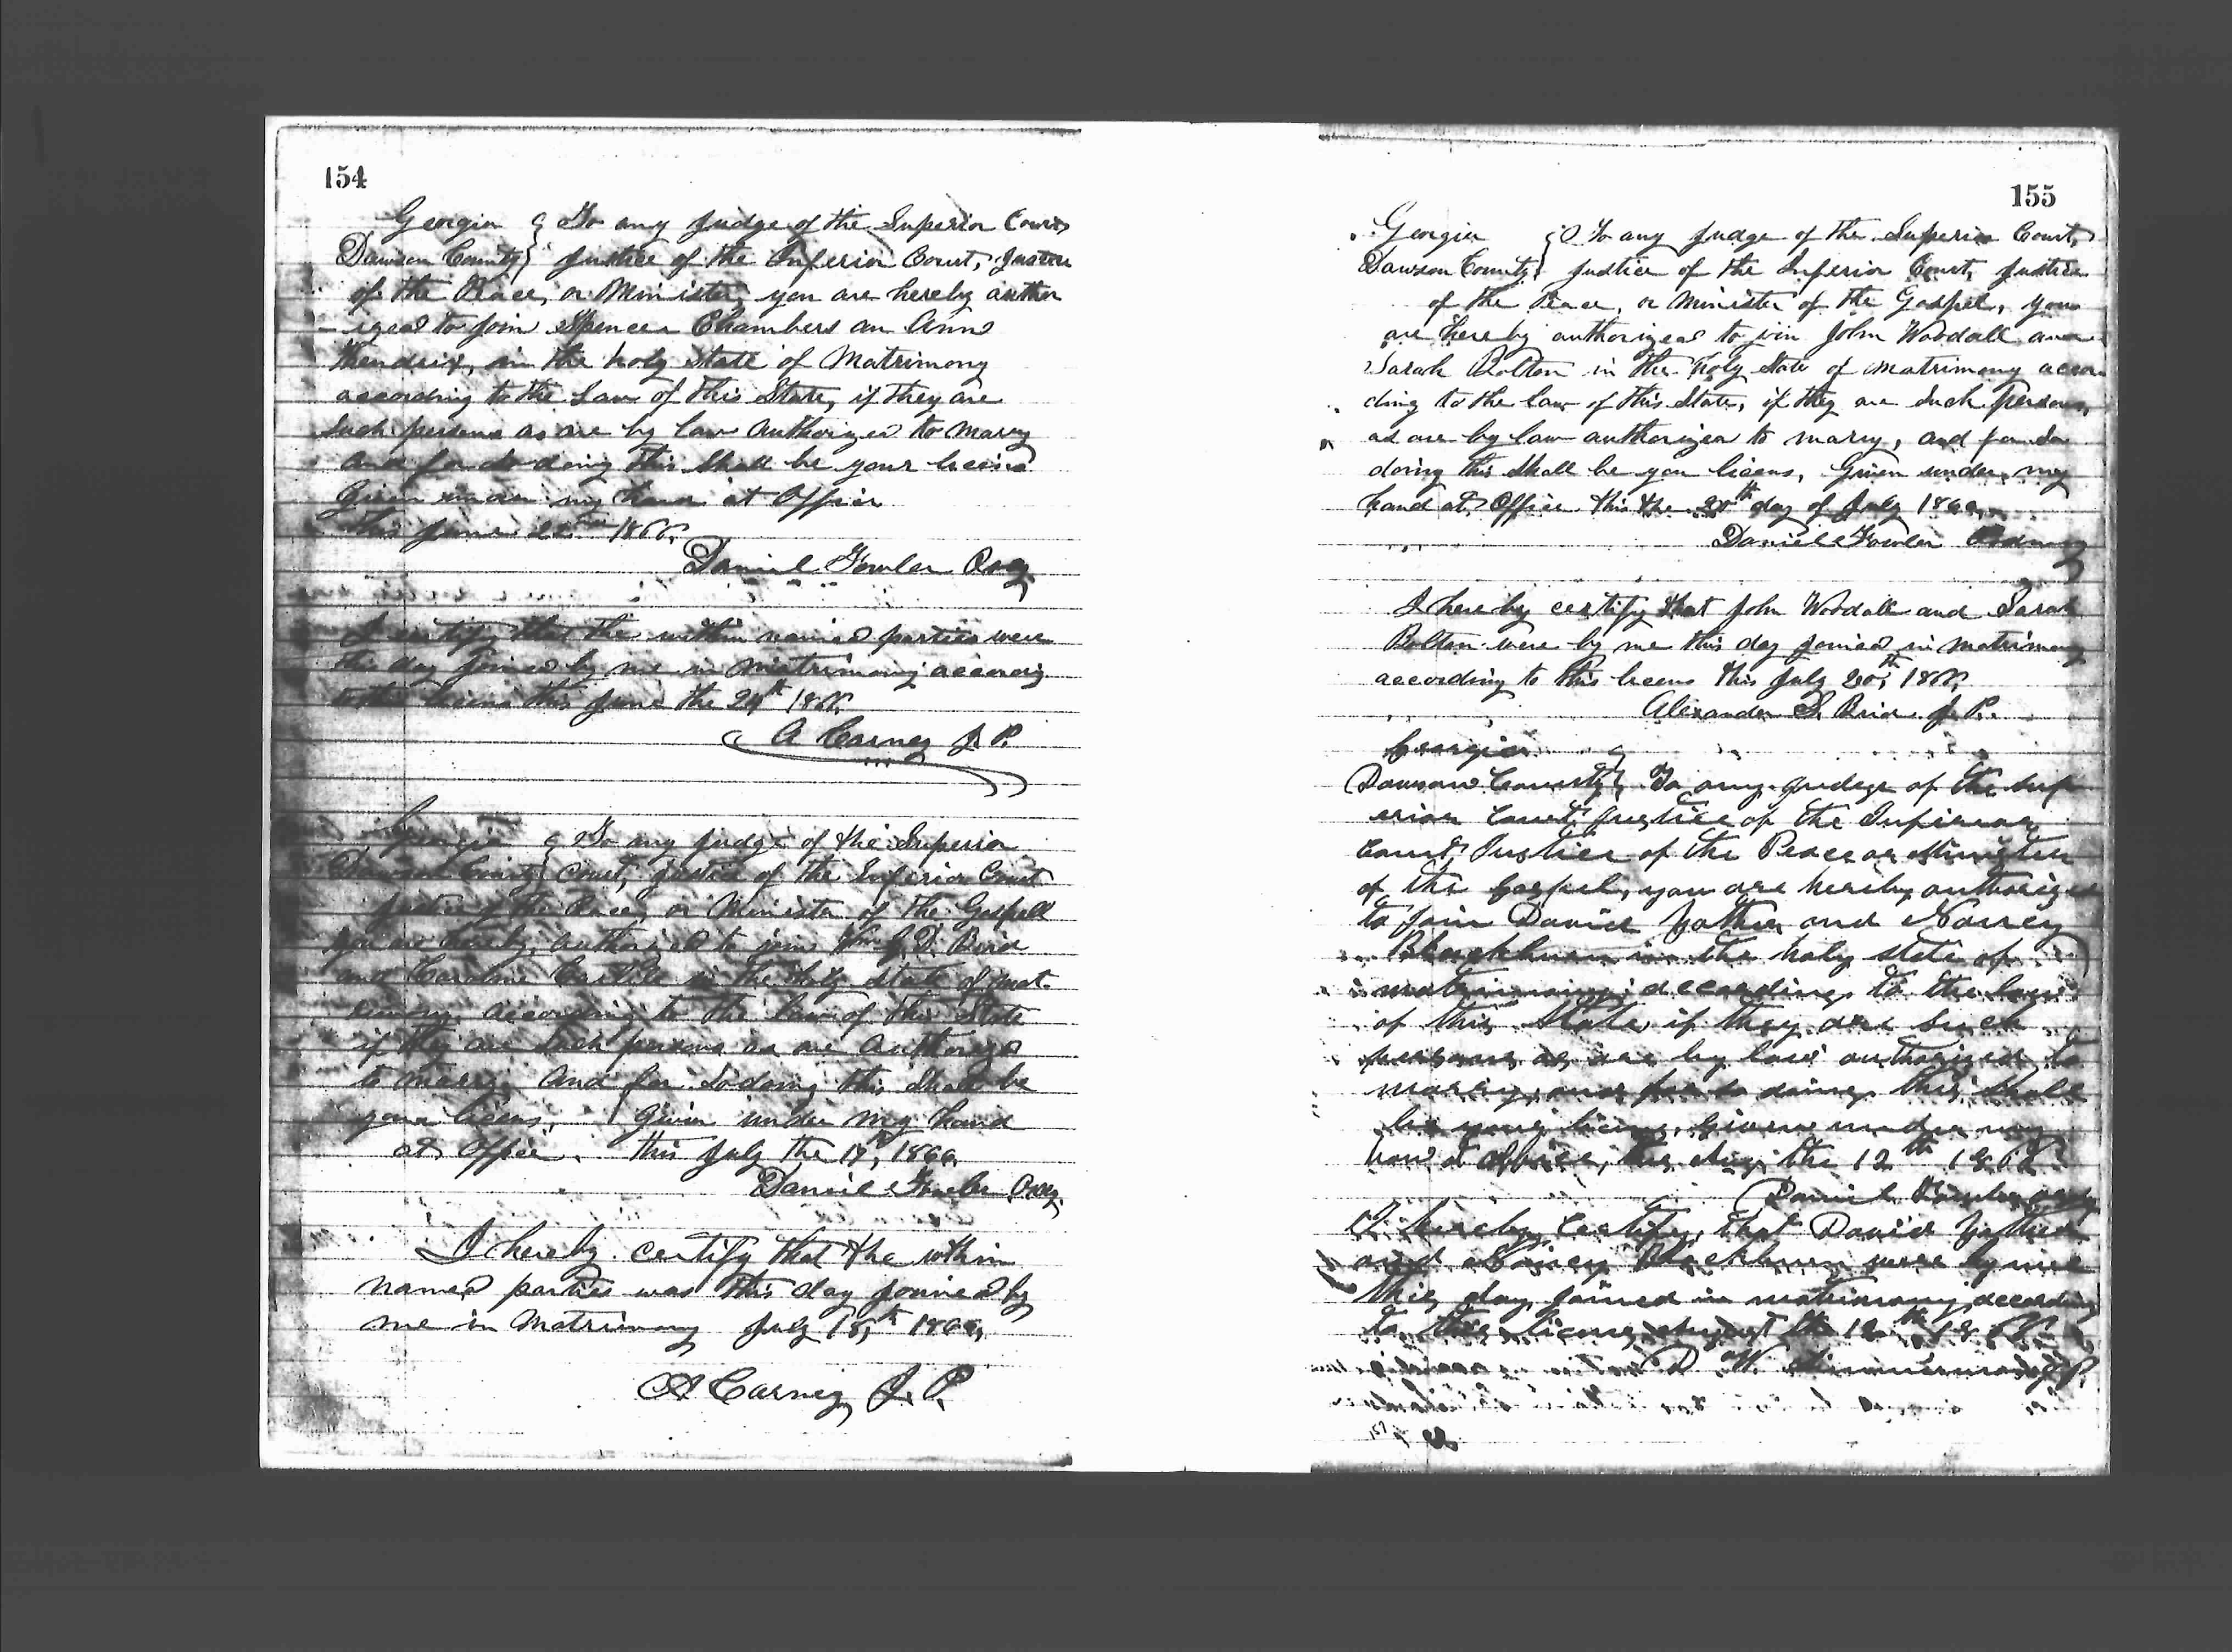 154
Georgia } To any Judge of the Superior Court
Dawson County } Justice of the Inferior Court, Justice
of the Peace, or Minister, you are hereby author
ized to join Spencer Chambers an Ann
Hendrix, in the holy State of Matrimony
according to the Law of this State, if they are
Such persons as are by law Authorized to Marry
and for so doing this Shall be your licens
Given under my hand at Office
this June 1866.
Daniel Fowler Ordy
I certify that the within named parties were
this day Joined by me in matrimony accordig
to this licens this June the 24th 1866.
A Carney J. P.
Georgia } To any Judge of the Superior
Dawson County } Court, Justice of the Inferior Court
Justice of the Peace, or Minister of the Gospell
you are hereby authorized to join Bird
and Caroline in the Holy State of mat-
rimony according to the law of this State
if they are Such persons as are Authorized
to marry And for So doing this Shall be
your licens, Given under my hand
at Office. this July the 17th, 1866
Daniel Fowler Ordy
I hereby certify that the within
named parties was this day joined by
me in Matrimony July 18th, 1866,
A Carney J. P.
155
Georgia } To any Judge of the Superior Court,
Dawson County } Justice of the Inferior Court, Justice
of the Peace, or Minister of the Gospel, you
are hereby authorized to join John Woodall and
Sarah Bolton in the Holy State of matrimony accor
ding to the law of this State, if they are Such Persons,
as are by law authorized to marry, and for So
doing this Shall be your licens, Given under my
hand at Office this the 20th day of July 1866,
Daniel Fowler Ordinary
I hereby certify that John Woodall and Sarah
Bolton were by me this day joined in matrimony
according to this licens this July 20th, 1866,
Alexander S. J. P.
Georgia }
Dawson County } To any Judge of the Sup
erior Court Justice of the Inferior
Court, Justice of the Peace or Minister
of the Gospel, you are hereby authorized
to join David and Nancy
Blackburn in the holy state of
matrimony according to the laws
of this State, if they are such
persons as are by law authorized to
marry, and for so doing this shall
be your licens, Given under my
hand at office, this Aug. the 12th 1866
Daniel Fowler ordy
I hereby certify, that David
and Nancy Blackburn were by me
this day joined in matrimony according
to this licens August the 12th 1866
D. W. J P.